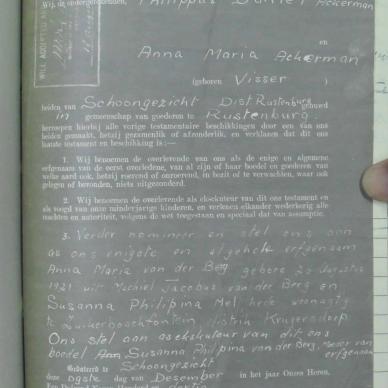 Wij, de ondergeteekenden, Philippus Daniel Ackerman
en
Anna Maria Ackerman
(geboren Visser )
beiden van Schoongezicht Dist Rustenburg gehuwd
in gemeenschap van goederen te Rustenburg.
herroepen hierbij alle vorige testamentaire beschikkingen door een van ons
beiden gemaakt, hetzij gezamenlijk of afzonderlijk, en verklaren dat dit ons
laatste testament en beschikking is:—
1. Wij benoemen de overlevende van ons als de enige en algemene
erfgenaam van de eerst overledene, van al zijn of haar boedel en goederen van
welke aard ook, hetzij roerend of onroerend, in bezit of te verwachten, waar ook
gelegen of bevonden, niets uitgezonderd.
2. Wij benoemen de overlevende als eksekuteur van dit ons testament en
als voogd van onze minderjarige kinderen, en verlenen elkander wederkerig alle
machten en autoriteit, volgens de wet toegestaan en speciaal dat van assumptie.
3. Verder nomineer en stel ons aan
as ons enigste en algehele erfgenaam
Anna Maria van der Berg gebore 20 Augustus
1921 uit Machiel Jacobus van der Berg en
Susanna Philipina Mel hede woonagtig
te Zuikerboschfontein distrik Krugersdorp
Ons stel aan as eksekuteur van dit ons
boedel Susanna Philipina van der Berg,
erfgenaam
Gedateerd te Schoongezicht
deze dag van Desember in het jaar Onzes Heren,